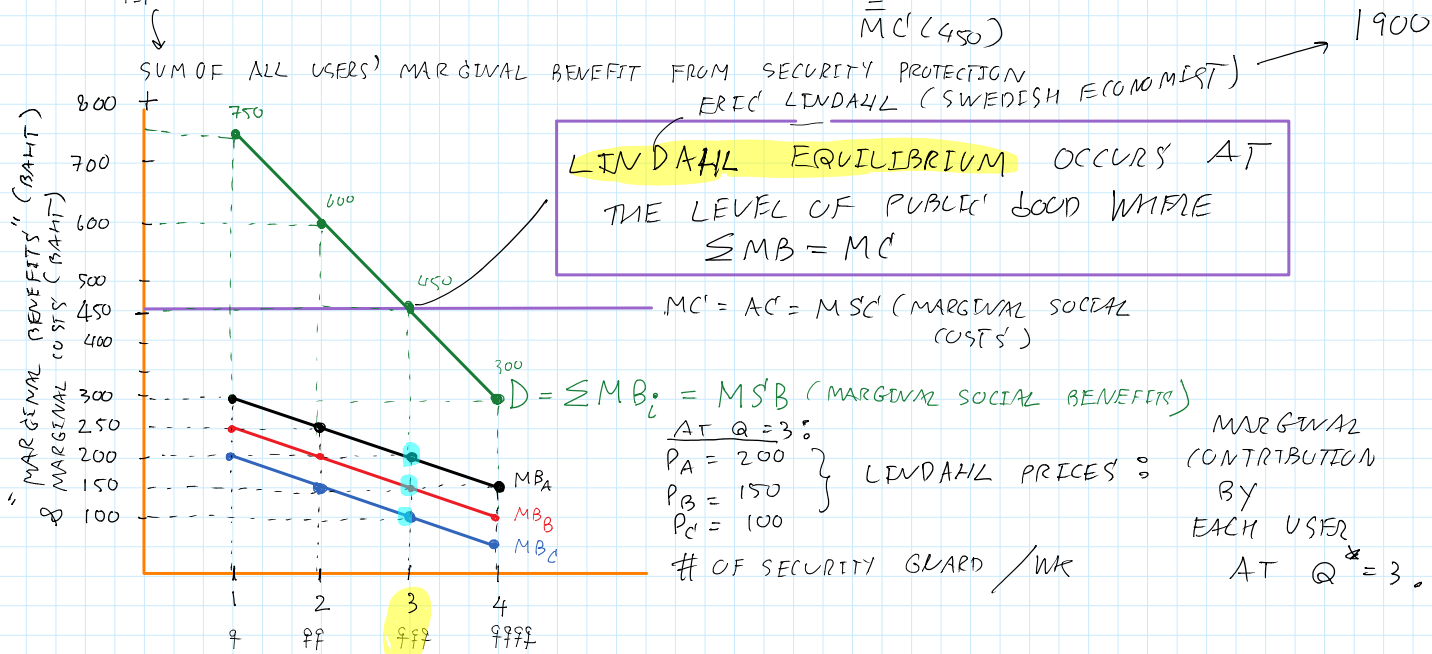 MC (450)
1900
SUM OF ALL USERS' MARGINAL BENEFIT FROM SECURITY PROTECTION
ERIC LINDAHL (SWEDISH ECONOMIST)
LINDAHL EQUILIBRIUM OCCURS AT
THE LEVEL OF PUBLIC GOOD WHERE
ΣMB = MC
"MARGINAL BENEFITS" (BAHT)
& MARGINAL COSTS (BAHT)
800
700
600
500
450
400
300
250
200
150
100
750
600
450
300
MC = AC = MSC (MARGINAL SOCIAL
COSTS)
D = ΣMBi = MSB (MARGINAL SOCIAL BENEFITS)
AT Q = 3:
PA = 200
PB = 150
PC = 100
LINDAHL PRICES:
MARGINAL
CONTRIBUTION
BY
EACH USER
AT Q* = 3.
MBA
MBB
MBC
# OF SECURITY GUARD / WK
1
2
3
4